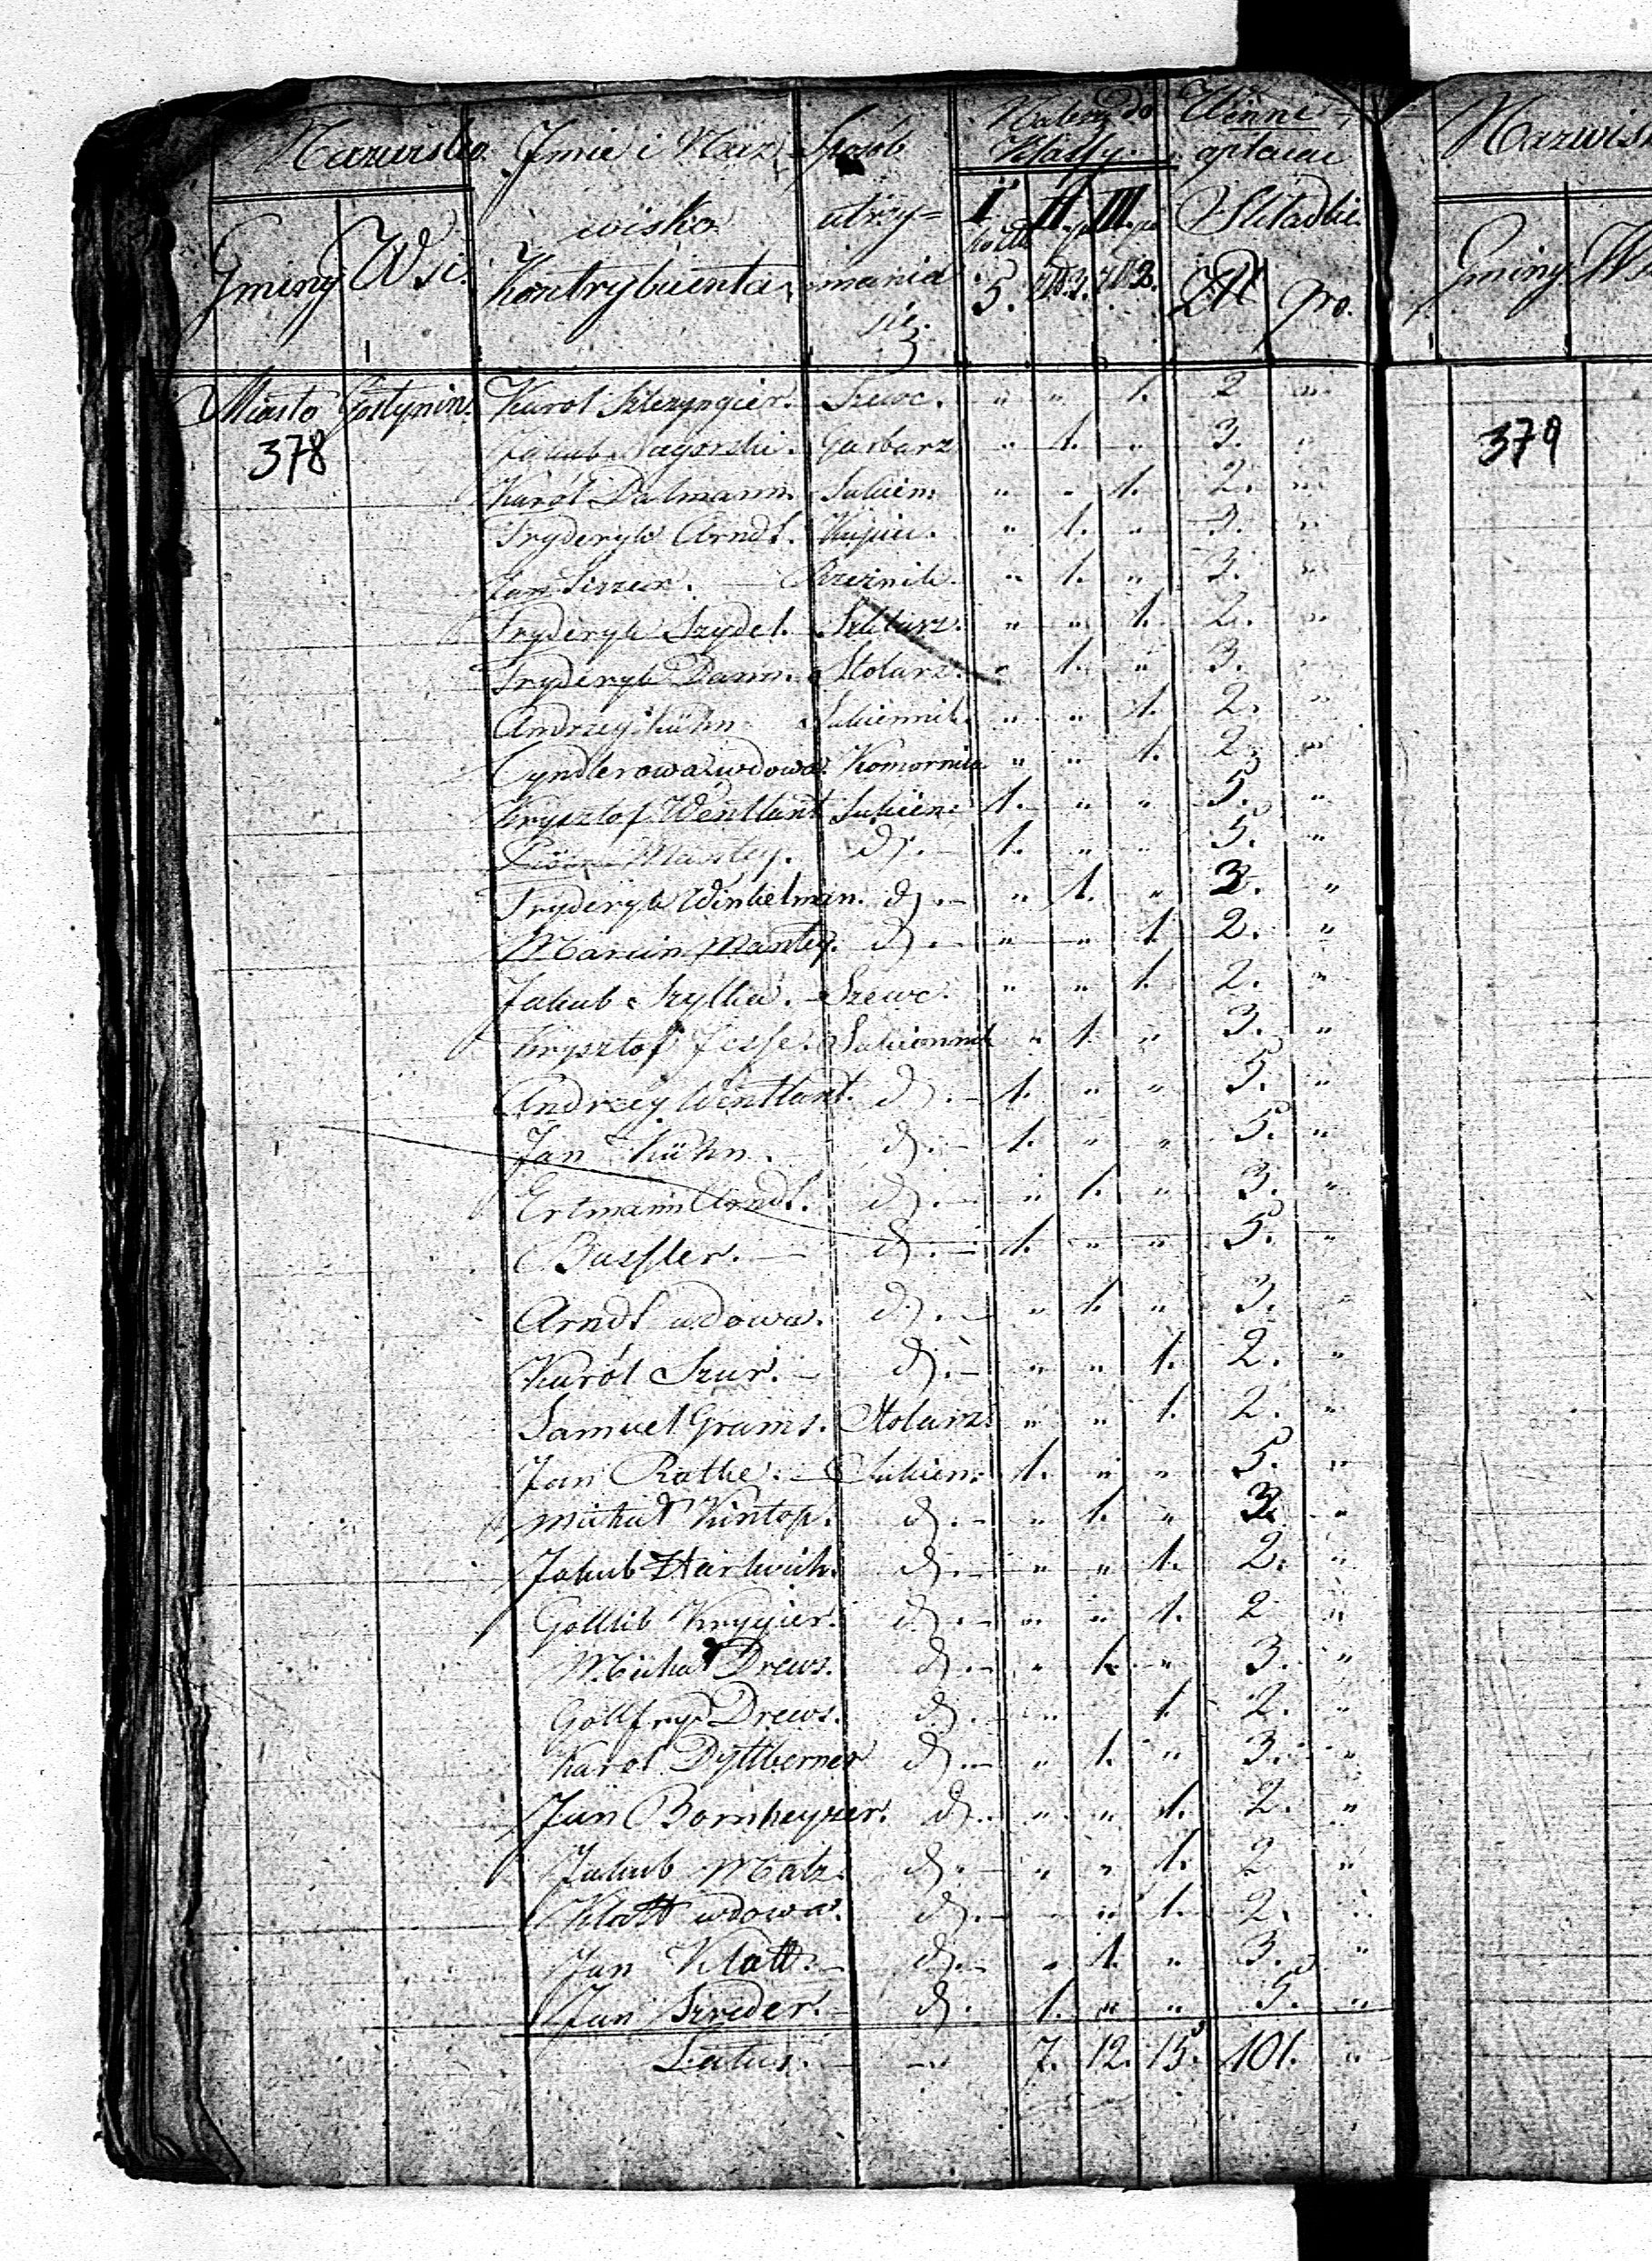 Nazwisko Jmie i Naz- Sposób Należą do Winne
Klassy opłacać
wisko utrzy= I II III Składki
Gminy Wsi Kontrybuenta mania 5. Zł gro.
się
Miasto Gostynin Karol Szlezyngier. Szewc. " " 1. 2 "
378 Jakub Sagorski. Garbarz " 1. " 3. "
Karól Dalmann. Sukien: " " 1. 2. "
Fryderyk Arndt. Kupiec. " 1. " 3. "
Jan — Rzeźnik. " 1. " 3. "
Fryderyk Szydel. " " 1. 2. "
Fryderyk Damm. Stolarz. " 1. " 3. "
Andrzey Kühn Sukiennik " " 1. 2. "
Cyndlerowa wdowa. Komornica " " 1. 2. "
Krysztof Wentlant Sukien: 1. " " 5. "
Mantey. d. — 1. " " 5. "
Fryderyk Winkelman. d. — " 1. " 3. "
Marcin Mantey. d. — " " 1. 2. "
Jakub Szylka. Szewc. " " 1. 2. "
Krysztof Jesse. Sukiennik " 1. " 3. "
Andrzey Wentlant. d. — 1. " " 5. "
Jan Kühn. d. — 1. " " 5. "
Ertmann Arndt. d. — " 1. " 3. "
Bassler. — d. — 1. " " 5. "
Arndt wdowa. d. — " 1. " 3. "
Karól Szur. — d. — " " 1. 2. "
Samuel Grams. Stolarz. " " 1. 2. "
Jan Rathe. — Sukien: 1. " " 5. "
Michał Kintop. d. — " 1. " 3. "
Jakub Hartwich. d. — " " 1. 2. "
Gottlib Krygier. d. — " " 1. 2 "
Michał Drews. d. — " 1. " 3. "
Gottfryd Drews. d. — " 1. 2. "
Karol Dyttberner d. — " 1. " 3. "
Jan Bornheyzer. d. " " 1. 2. "
Jakub Matz. d. — " " 1. 2 "
Klatt wdowa. d. — " " 1. 2. "
Jan Klatt. — d. — " 1. " 3. "
Jan Szreder. — d. 1. " " 5. "
Latus. — " 7. 12. 15. 101. "
Nazwisk
Gminy
379